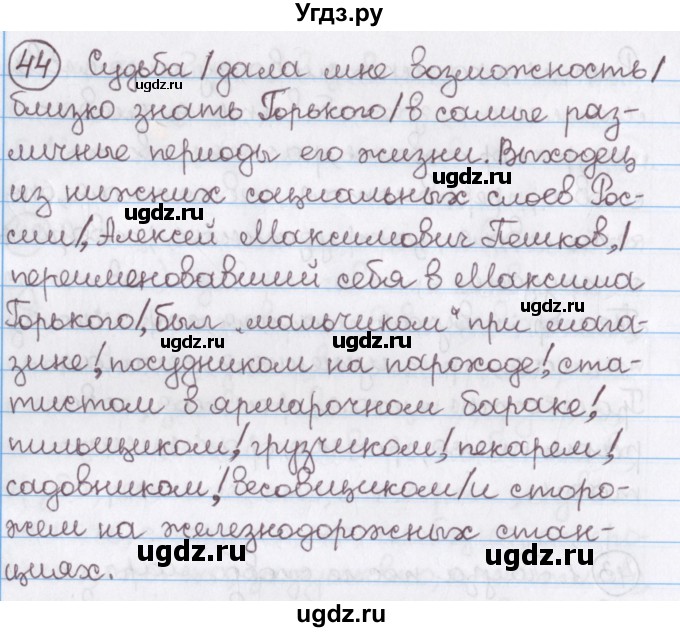 Угдз.ру
44 Судьба / дала мне возможность /
близко знать Горького / в самые раз-
личные периоды его жизни. Выходец
из нижних социальных слоев Рос-
сии /, Алексей Максимович Пешков, /
переименовавший себя в Максима
Горького /, был „мальчиком“ при мага-
зине /, посудником на пароходе /, ста-
тистом в ярмарочном бараке /,
пильщиком /, грузчиком /, пекарем /,
садовником, / весовщиком / и сторо-
жем на железнодорожных стан-
циях.
ugdz.ru
ugdz.ru
ugdz.ru
ugdz.ru
ugdz.ru
ugdz.ru
ugdz.ru
ugdz.ru
ugdz.ru
ugdz.ru
ugdz.ru